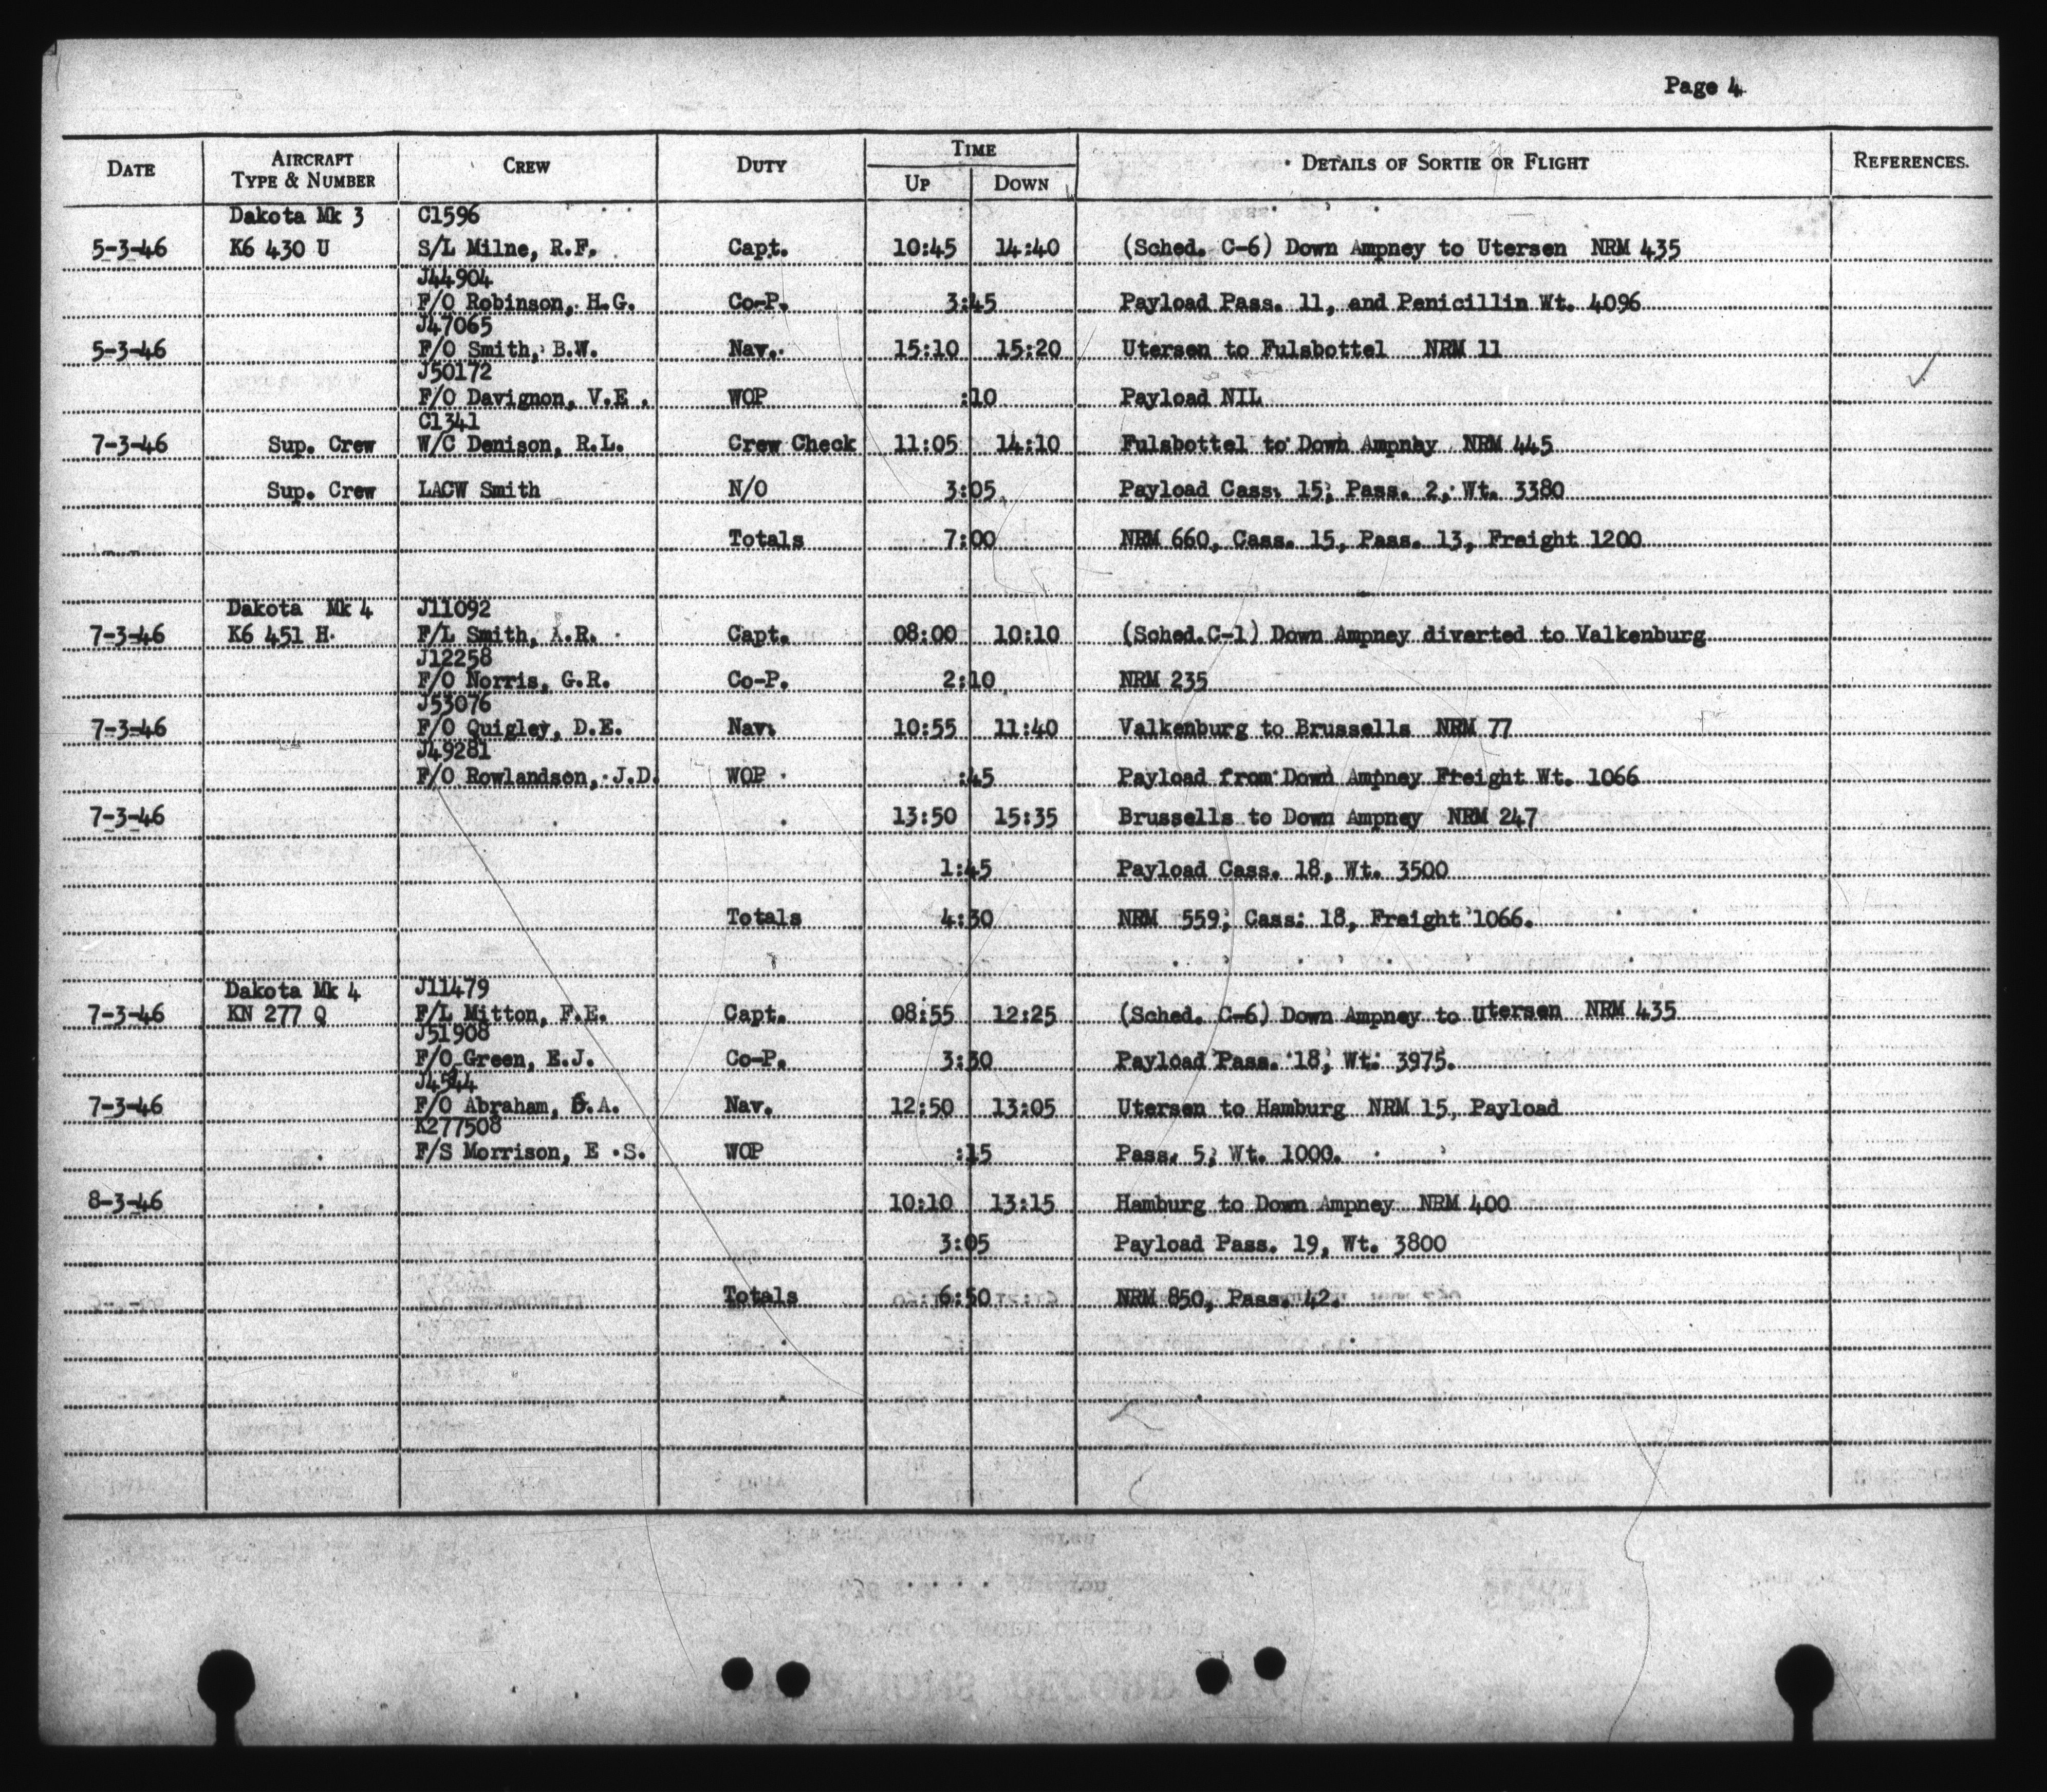 Page 4
DATE AIRCRAFT TYPE & NUMBER CREW DUTY TIME UP DOWN DETAILS OF SORTIE OR FLIGHT REFERENCES.
Dakota Mk 3 C1596
5-3-46 K6 430 U S/L Milne, R.F. Capt. 10:45 14:40 (Sched. C-6) Down Ampney to Utersen NRM 435
J44904
F/O Robinson, H.G. Co-P. 3:45 Payload Pass. 11, and Penicillin Wt. 4096
J47065
5-3-46 F/O Smith, B.W. Nav. 15:10 15:20 Utersen to Fulsbottel NRM 11
J50172
F/O Davignon, V.E. WOP :10 Payload NIL
C1341
7-3-46 Sup. Crew W/C Denison, R.L. Crew Check 11:05 14:10 Fulsbottel to Down Ampney NRM 445
Sup. Crew LACW Smith N/O 3:05 Payload Cass. 15, Pass. 2, Wt. 3380
Totals 7:00 NRM 660, Cass. 15, Pass. 13, Freight 1200
Dakota Mk 4 J11092
7-3-46 K6 451 H F/L Smith, A.R. Capt. 08:00 10:10 (Sched.C-1) Down Ampney diverted to Valkenburg
J12258
F/O Norris, G.R. Co-P. 2:10 NRM 235
J53076
7-3-46 F/O Quigley, D.E. Nav. 10:55 11:40 Valkenburg to Brussells NRM 77
J49281
F/O Rowlandson, J.D. WOP :45 Payload from Down Ampney Freight Wt. 1066
7-3-46 13:50 15:35 Brussells to Down Ampney NRM 247
1:45 Payload Cass. 18, Wt. 3500
Totals 4:30 NRM 559, Cass. 18, Freight 1066.
Dakota Mk 4 J11479
7-3-46 KN 277 Q F/L Mitton, F.E. Capt. 08:55 12:25 (Sched. C-6) Down Ampney to Utersen NRM 435
J51908
F/O Green, E.J. Co-P. 3:30 Payload Pass. 18, Wt. 3975.
7-3-46 F/O Abraham, Nav. 12:50 13:05 Utersen to Hamburg NRM 15, Payload
K277508
F/S Morrison, E.S. WOP :15 Pass. 5, Wt. 1000.
8-3-46 10:10 13:15 Hamburg to Down Ampney NRM 400
3:05 Payload Pass. 19, Wt. 3800
Totals 6:50 NRM 850, Pass. 42.